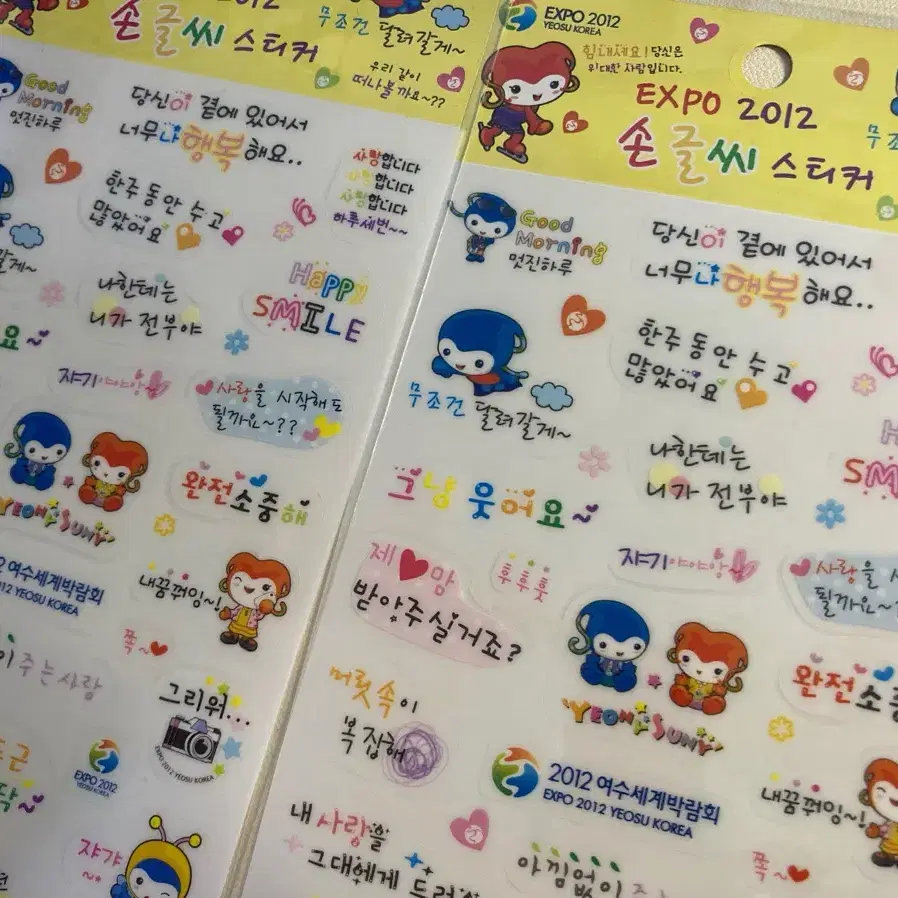 2012
손글씨 스티커
무조건 달려갈게~
우리 같이
떠나볼까요~??
Good
Morning
멋진하루
당신이 곁에 있어서
너무나 행복해요..
사랑합니다
사랑합니다
사랑합니다
하루세번~~
한주 동안 수고
많았어요
나한테는
니가 전부야
Happy
SMILE
쟈기야야앙
사랑을 시작해도
될까요~??
완전소중해
YEONY SUNY
2012 여수세계박람회
2012 YEOSU KOREA
내꿈꿔잉~!
쪽~
이 주는사람
그리워...
EXPO 2012 YEOSU KOREA
EXPO 2012
YEOSU KOREA
쟈갸
~
EXPO 2012
YEOSU KOREA
힘내세요! 당신은
위대한 사람입니다.
EXPO 2012
손글씨 스티커
무조
Good
Morning
멋진하루
당신이 곁에 있어서
너무나 행복해요..
무조건 달려갈게~
한주 동안 수고
많았어요
나한테는
니가 전부야
SM
그냥 웃어요~
쟈기야야앙
사랑을
될까요~?
제 맘
받아주실거죠?
훗훗훗
YEONY SUNY
완전소중
머릿속이
복잡해
2012 여수세계박람회
EXPO 2012 YEOSU KOREA
내꿈꿔잉~!
쪽~
내 사랑을
그대에게
아낌없이